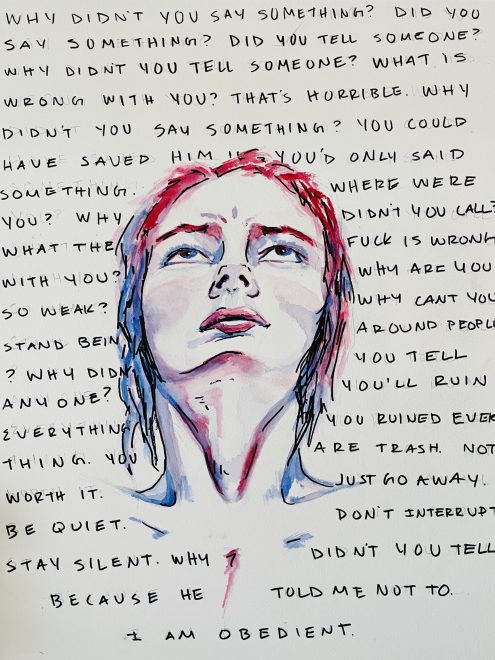 WHY DIDN'T YOU SAY SOMETHING? DID YOU
SAY SOMETHING? DID YOU TELL SOMEONE?
WHY DIDNT YOU TELL SOMEONE? WHAT IS
WRONG WITH YOU? THAT'S HORRIBLE. WHY
DIDN'T YOU SAY SOMETHING? YOU COULD
HAVE SAVED HIM IF YOU'D ONLY SAID
SOMETHING. WHERE WERE
YOU? WHY DIDN'T YOU CALL?
WHAT THE FUCK IS WRONG
WITH YOU? WHY ARE YOU
SO WEAK? WHY CANT YOU
STAND BEIN AROUND PEOPL
? WHY DIDN YOU TELL
ANYONE? YOU'LL RUIN
EVERYTHING YOU RUINED EVER
THING. YOU ARE TRASH. NOT
WORTH IT. JUST GO AWAY.
BE QUIET. DON'T INTERRUPT
STAY SILENT. WHY ? DIDN'T YOU TELL
BECAUSE HE TOLD ME NOT TO.
I AM OBEDIENT.